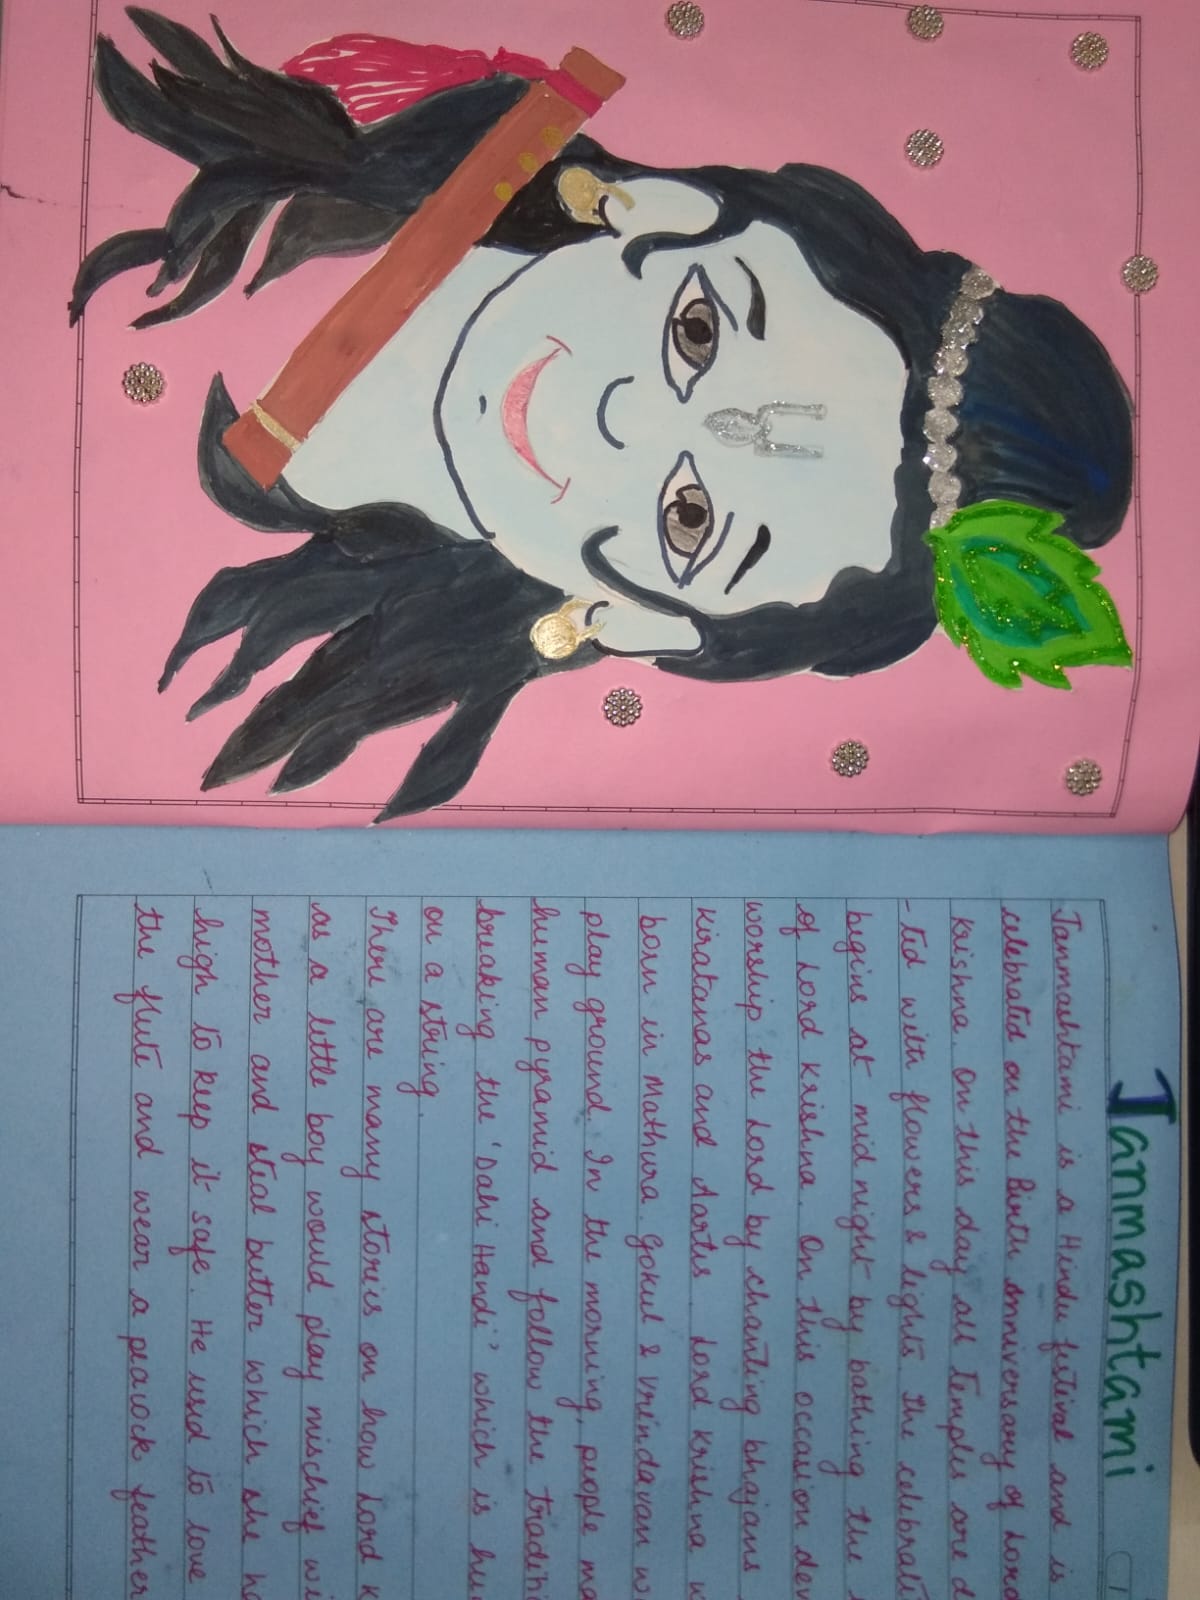 Janmashtami
Janmashtami is a Hindu festival and is
celebrated on the Birth anniversary of Lord
Krishna. On this day all temples are d
-ted with flowers & lights. The celebrati
begins at mid night by bathing the
of Lord Krishna. On this occasion dev
worship the Lord by chanting bhajans
Kiratanas and Aartis. Lord Krishna w
born in Mathura. Gokul & Vrindavan w
play ground. In the morning, people ma
human pyramid and follow the traditi
breaking the 'Dahi Handi' which is hu
on a string.
There are many stories on how Lord K
as a little boy would play mischief wi
mother and steal butter which she ha
high to keep it safe. He used to love
the flute and wear a peacock feather